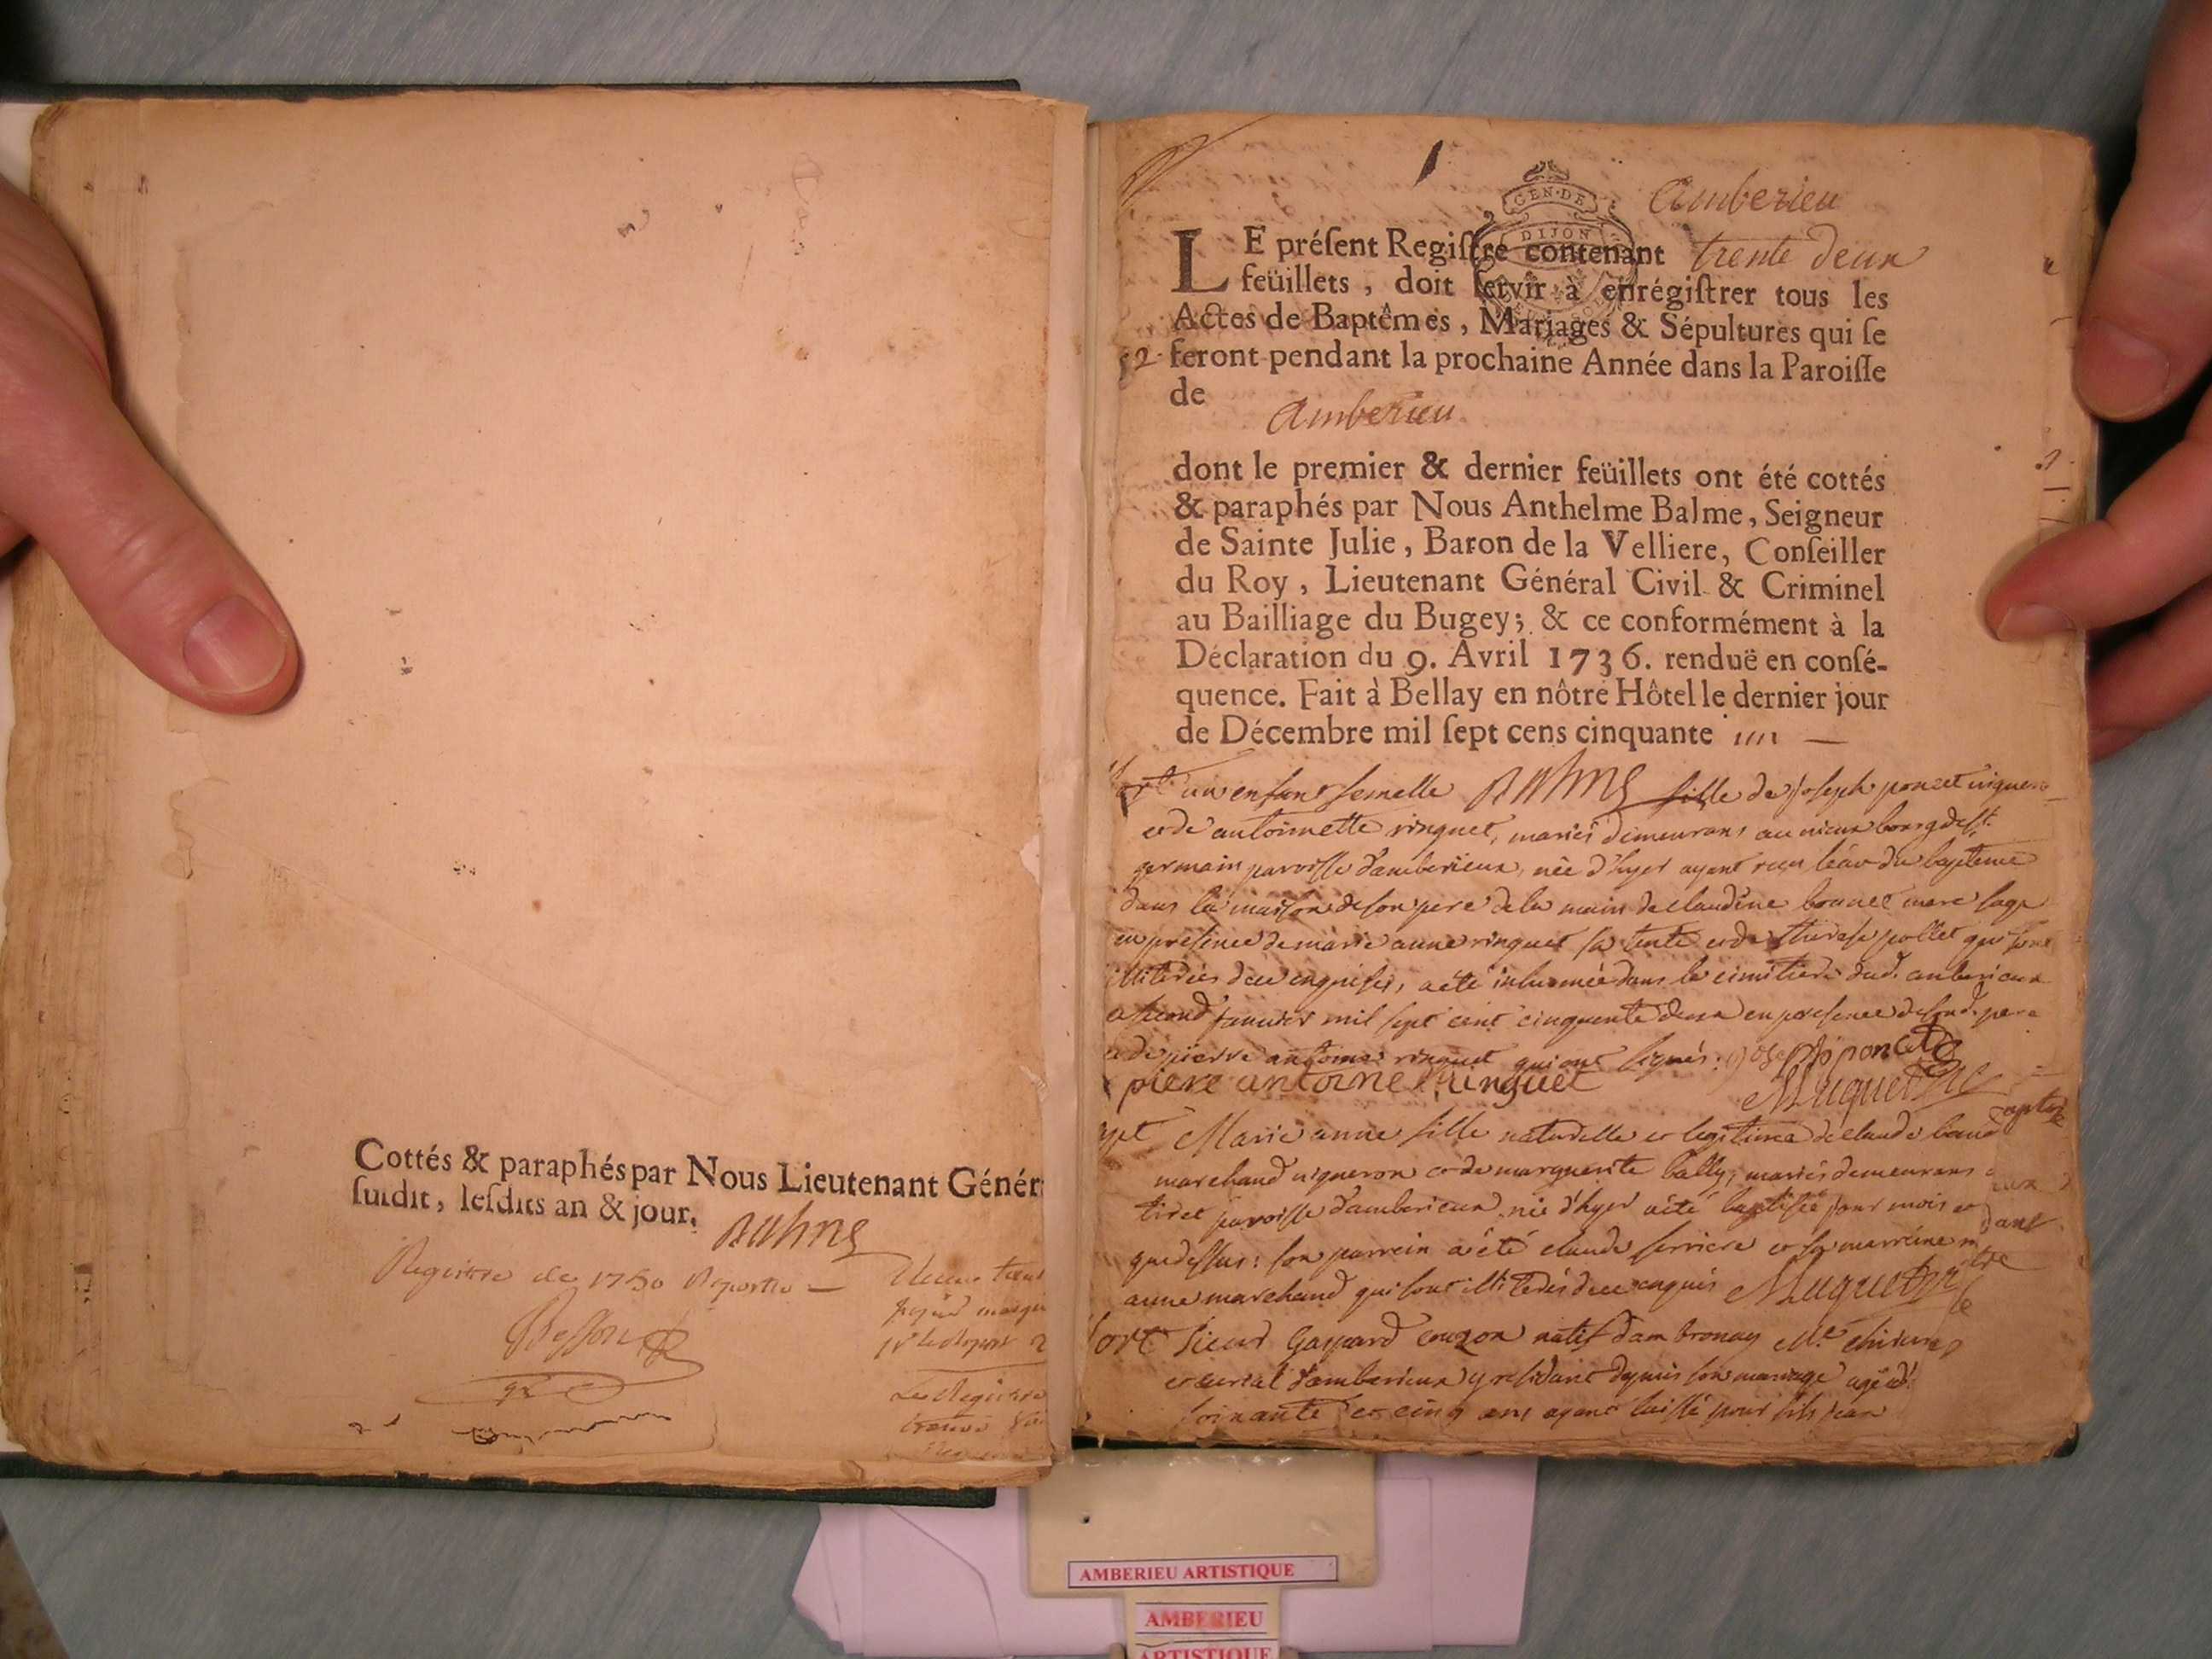 Cottés & paraphés par Nous Lieutenant Génér
susdit, lesdits an & jour.
Balme
Registre de 1750
Besson
1
GEN·DE
DIJON
Amberieu
LE préſent Regiſtre contenant trente deux
feüillets , doit ſervir à enrégiſtrer tous les
Actes de Baptêmes , Mariages & Sépultures qui ſe
52 feront pendant la prochaine Année dans la Paroiſſe
de
Amberieu
dont le premier & dernier feüillets ont été cottés
& paraphés par Nous Anthelme Balme, Seigneur
de Sainte Julie , Baron de la Velliere, Conſeiller
du Roy , Lieutenant Général Civil & Criminel
au Bailliage du Bugey; & ce conformément à la
Déclaration du 9. Avril 1736. renduë en conſé-
quence. Fait à Bellay en nôtre Hôtel le dernier jour
de Décembre mil ſept cens cinquante
un enfant femelle Balme fille de joseph poncet vigneron
et de antoinette ringuet, mariés demeurans au vieux bourg de St.
germain paroisse d'amberieux, née d'hyer ayant reçu l'eau du bapteme
dans la maison de son pere de la main de claudine bonnet mere sage
en presence de marie anne ringuet sa tente et de therese pollet qui sont
illiterées de ce enquises, a eté inhumée dans le cimitiere dud. amberieux
second janvier mil sept cent cinquante deux en presence de sond. pere
et de pierre antoine ringuet qui ont signés. joseph poncet
piere antoine ringuet
Marie anne fille naturelle et legitime de claude
marchand vigneron et de marguerite bally, mariés demeurans
tiret paroisse d'amberieux née d'hyer a eté baptisée jour mois et
que dessus: son parrein a été claude serriere et sa marreine
anne marchand qui sont illiterés de ce enquis
mort Sieur Gaspard couzon natif d'ambronay Me. chirur
et curial d'amberieux y residant depuis son mariage agé d
soixante et cinq ans ayant laissé pour fils jean
AMBERIEU ARTISTIQUE
AMBERIEU
ARTISTIQUE